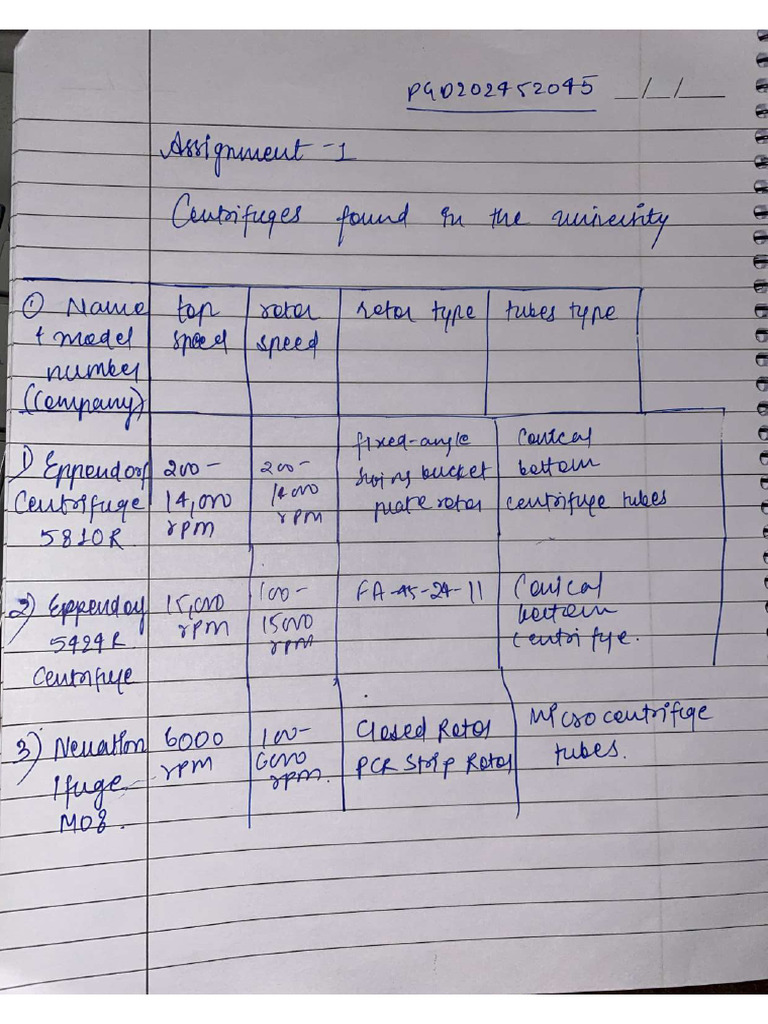 PGD202452045 __/__/__
Assignment -1
Centrifuges found in the university
① Name + model number (Company)
top speed
rotor speed
rotor type
tubes type
1) Eppendorf
Centrifuge
5810R
200 -
14,000
rpm
200 -
14000
rpm
fixed-angle
swing bucket
plate rotor
Conical
bottom
centrifuge tubes
2) Eppendorf
5424R
Centrifuge
15,000
rpm
100 -
15000
rpm
FA-45-24-11
Conical
bottom
centrifuge.
3) Neuation
Ifuge
M08.
6000
rpm
100 -
6000
rpm.
Closed Rotor
PCR Strip Rotor
Microcentrifuge
tubes.